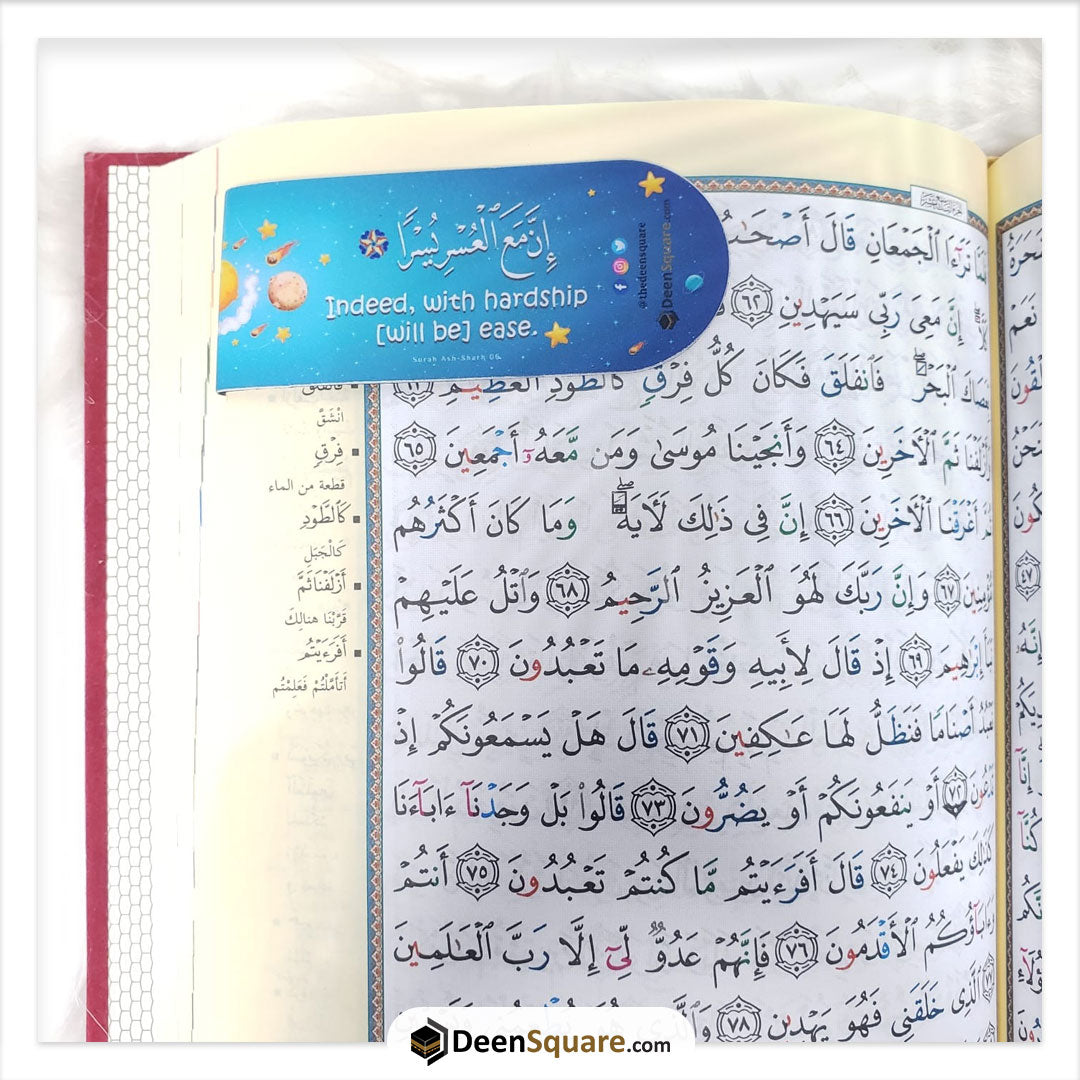 إِنَّ مَعَ ٱلْعُسْرِ يُسْرًا
Indeed, with hardship
[will be] ease.
Surah Ash-Sharh 06
@thedeensquare
DeenSquare.com
ٱلْجَمْعَانِ قَالَ أَصْحَٰبُ
إِنَّ مَعِىَ رَبِّى سَيَهْدِينِ ٦٢
فَٱنفَلَقَ فَكَانَ كُلُّ فِرْقٍ كَٱلطَّوْدِ ٱلْعَظِيمِ ٦٣
ثَمَّ ٱلْأَخَرِينَ ٦٤ وَأَنجَيْنَا مُوسَىٰ وَمَن مَّعَهُۥٓ أَجْمَعِينَ ٦٥
أَغْرَقْنَا ٱلْأَخَرِينَ ٦٦ إِنَّ فِى ذَٰلِكَ لَأَيَةً ۖ وَمَا كَانَ أَكْثَرُهُم
٦٧ وَإِنَّ رَبَّكَ لَهُوَ ٱلْعَزِيزُ ٱلرَّحِيمُ ٦٨ وَٱتْلُ عَلَيْهِمْ
إِبْرَٰهِيمَ ٦٩ إِذْ قَالَ لِأَبِيهِ وَقَوْمِهِۦ مَا تَعْبُدُونَ ٧٠ قَالُوا۟
أَصْنَامًا فَنَظَلُّ لَهَا عَٰكِفِينَ ٧١ قَالَ هَلْ يَسْمَعُونَكُمْ إِذْ
٧٢ أَوْ يَنفَعُونَكُمْ أَوْ يَضُرُّونَ ٧٣ قَالُوا۟ بَلْ وَجَدْنَآ ءَابَآءَنَا
كَذَٰلِكَ يَفْعَلُونَ ٧٤ قَالَ أَفَرَءَيْتُم مَّا كُنتُمْ تَعْبُدُونَ ٧٥ أَنتُمْ
وَءَابَآؤُكُمُ ٱلْأَقْدَمُونَ ٧٦ فَإِنَّهُمْ عَدُوٌّ لِّىٓ إِلَّا رَبَّ ٱلْعَٰلَمِينَ
ٱلَّذِى خَلَقَنِى فَهُوَ يَهْدِينِ ٧٨ وَٱلَّذِى هُوَ
فَٱنفَلَقَ
انْشَقَّ
فِرْقٍ
قطعة من الماء
كَٱلطَّوْدِ
كَالْجَبَلِ
أَزْلَفْنَا ثَمَّ
قَرَّبْنَا هنالِكَ
أَفَرَءَيْتُم
أَتَأَمَّلْتُمْ فَعَلِمْتُم
نَعَمْ
نَحْنُ
٤٧
إِنَّهُۥ
DeenSquare.com